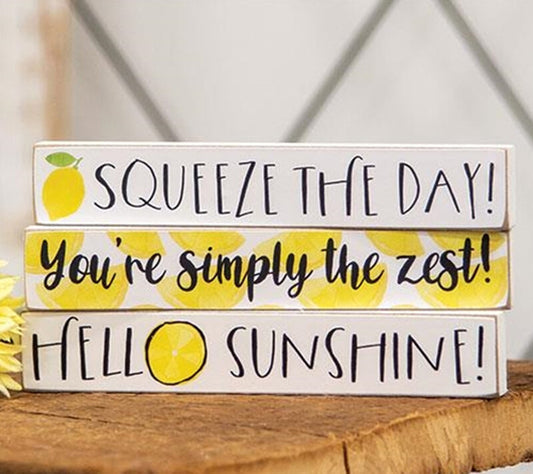 SQUEEZE THE DAY!
You're simply the zest!
HELLO SUNSHINE!